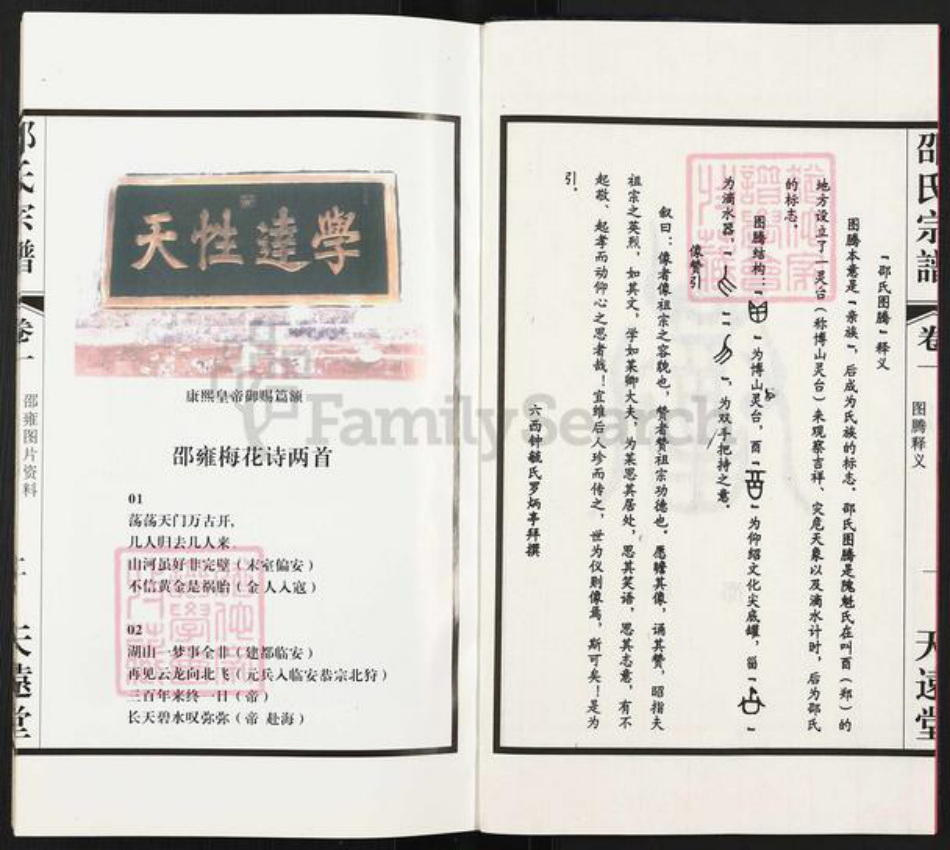 邵氏宗譜
卷一
图腾释义
天远堂
「邵氏图腾」释义
图腾本意是「亲族」，后成为氏族的标志。邵氏图腾是隗魁氏在叫酉（郑）的
地方设立了一灵台（称博山灵台）来观察吉祥、灾庖天象以及滴水计时，后为邵氏
的标志。
图腾结构：「 」为博山灵台，酉「 」为仰绍文化尖底罐，甾「 」
为滴水器，「 」二「 」，为双手把持之意。
像赞引
叙曰：像者像祖宗之容貌也，赞者赞祖宗功德也。愿瞻其像，诵其赞，昭指夫
祖宗之英烈，如其文，学如某卿大夫，为某思其居处，思其笑语，思其志意，有不
起敬、起孝而动仰心之思者哉！宜维后人珍而传之，世为仪则像焉，斯可矣！是为
引。
六西钟毓氏罗炳亭拜撰
学達性天
康熙皇帝御赐篇额
邵雍梅花诗两首
01
荡荡天门万古开,
几人归去几人来.
山河虽好非完璧（末室偏安）
不信黄金是祸胎（金人入寇）
02
湖山一梦事全非（建都临安）
再见云龙向北飞（元兵入临安恭宗北狩）
三百年来终一日（帝）
长天碧水叹弥弥（帝 赴海）
邵氏宗譜
卷一
邵雍图片资料
天遠堂
FamilySearch